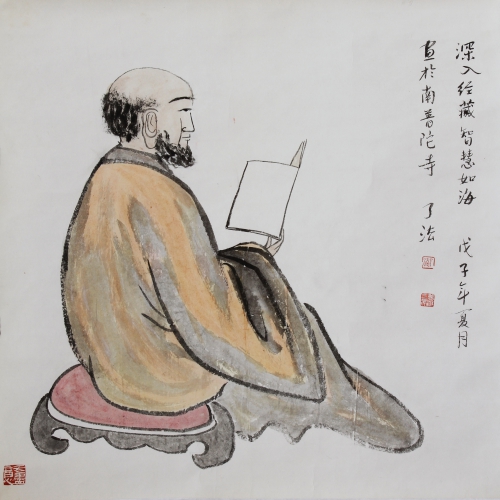 深入经藏智慧如海 戊子年夏月
画於南普陀寺 了法